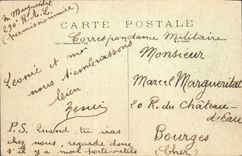 M. Margueritat
230e R.A.C.
(permissionnaire)
CARTE POSTALE
Correspondance Militaire
Léonie et moi
nous t'embrassons
bien
P.S. Quand tu iras
chez nous, regarde donc
s'il y a mon porte-billets
Monsieur
Marcel Margueritat
20 R. du Château-
d'Eau
Bourges
(Cher)